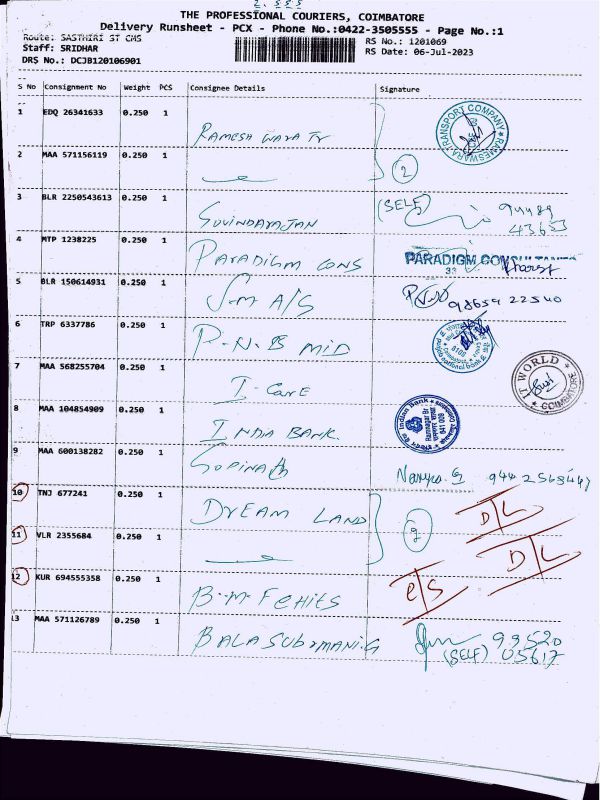 THE PROFESSIONAL COURIERS, COIMBATORE
Delivery Runsheet - PCX - Phone No.:0422-3505555 - Page No.:1
Route: SASTHIRI ST CMS
RS No.: 1201069
Staff: SRIDHAR
RS Date: 06-Jul-2023
DRS No.: DCJB120106901
S No Consignment No Weight PCS Consignee Details Signature
1 EDQ 26341633 0.250 1 RAMESH WARA Tr RAMESWARA TRANSPORT COMPANY
2 MAA 571156119 0.250 1 2
3 BLR 2250543613 0.250 1 GOVINDARAJAN (SELF) 94489
43653
4 MTP 1238225 0.250 1 PARADIGM CONS PARADIGM CONSULTANTS
33
5 BLR 150614931 0.250 1 S.M A/S 98659 22540
6 TRP 6337786 0.250 1 P.N.B MID
7 MAA 568255704 0.250 1 I-Care IT WORLD COIMBATORE
8 MAA 104854909 0.250 1 INDIA BANK. Indian Bank
Ramnagar Br
641 009
9 MAA 600138282 0.250 1 GOPINATH
10 TNJ 677241 0.250 1 DREAM LAND D/L
11 VLR 2355684 0.250 1 D/L
12 KUR 694555358 0.250 1 B.M FEHITS C/S
13 MAA 571126789 0.250 1 BALASUBRMANI.G 99520
(SELF) 05617